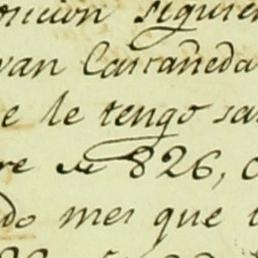 osicion siguien
van Castañeda
e le tengo sa
re de 826, c
do mes que